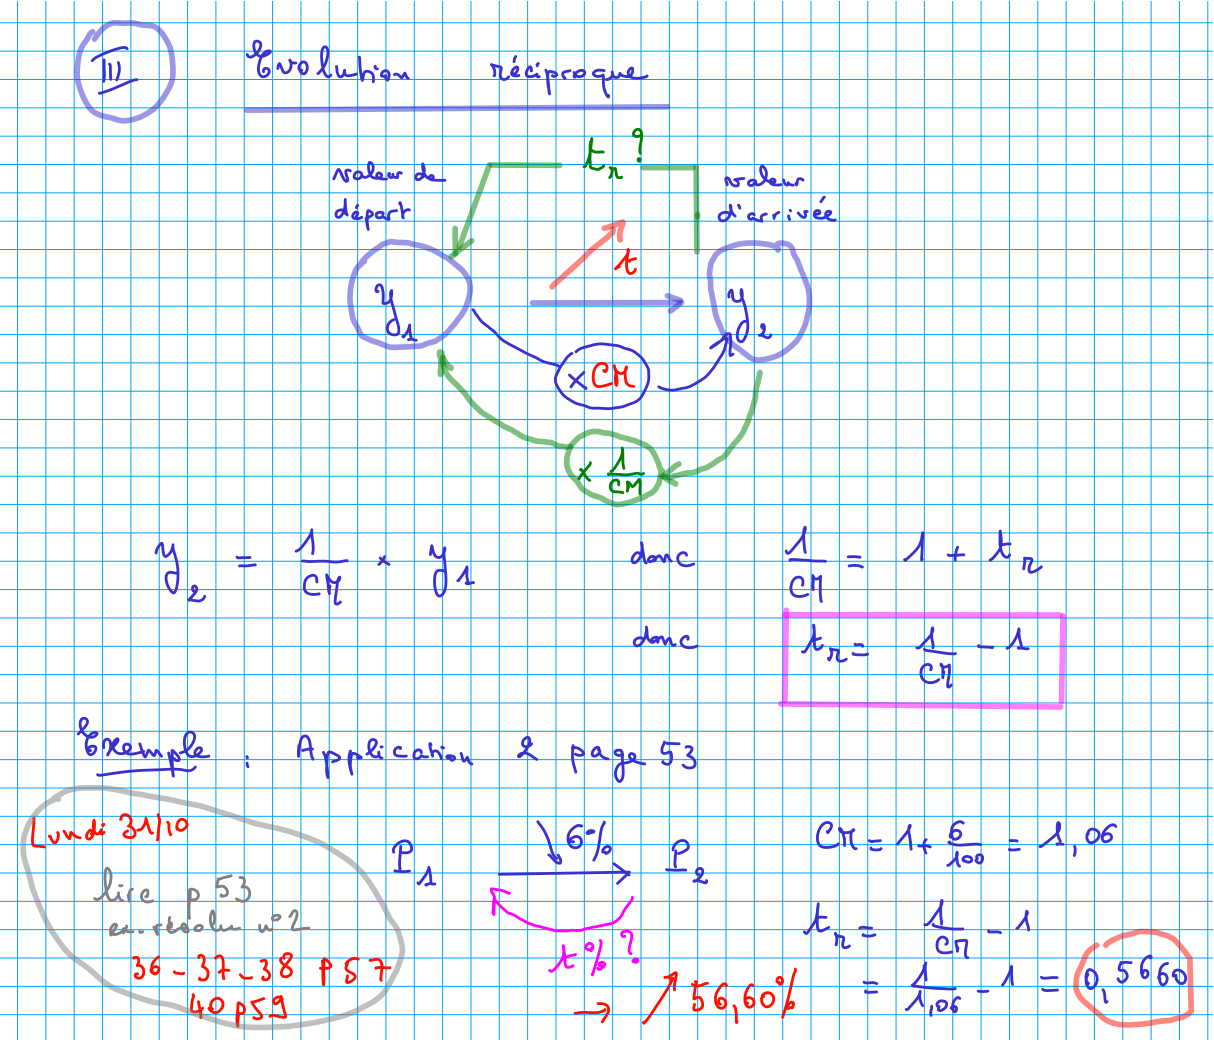 III Evolution réciproque
tr ?
valeur de départ
valeur d'arrivée
t
y1
y2
× CM
× 1/CM
y2 = 1/CM × y1 donc 1/CM = 1 + tr
donc tr = 1/CM - 1
Exemple : Application 2 page 53
Lundi 31/10
lire p 53
ex. résolu n°2
36 - 37 - 38 p 57
40 p 59
P1 ↘ 6% P2
t% ?
→ ↗ 56,60%
CM = 1 + 6/100 = 1,06
tr = 1/CM - 1
= 1/1,06 - 1 = 0,5660